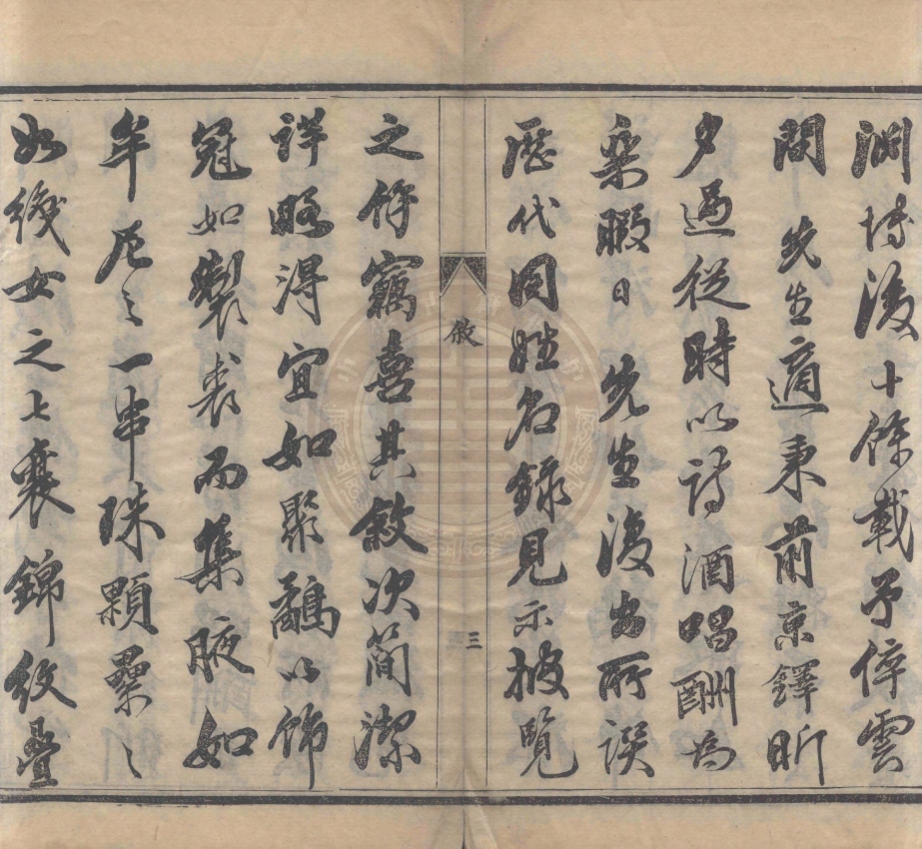 淵博後十餘載予倅雲
間 先生適秉前京鐸昕
夕過從時以詩酒唱酬為
樂暇日 先生復出所譔
歷代同姓名錄見示披覽
敘
三
之餘竊喜其敘次簡潔
詳略得宜如聚鷸以飾
冠如製裘而集腋如
牟尼之一串珠顆纍々
如織女之七襄錦紋疊